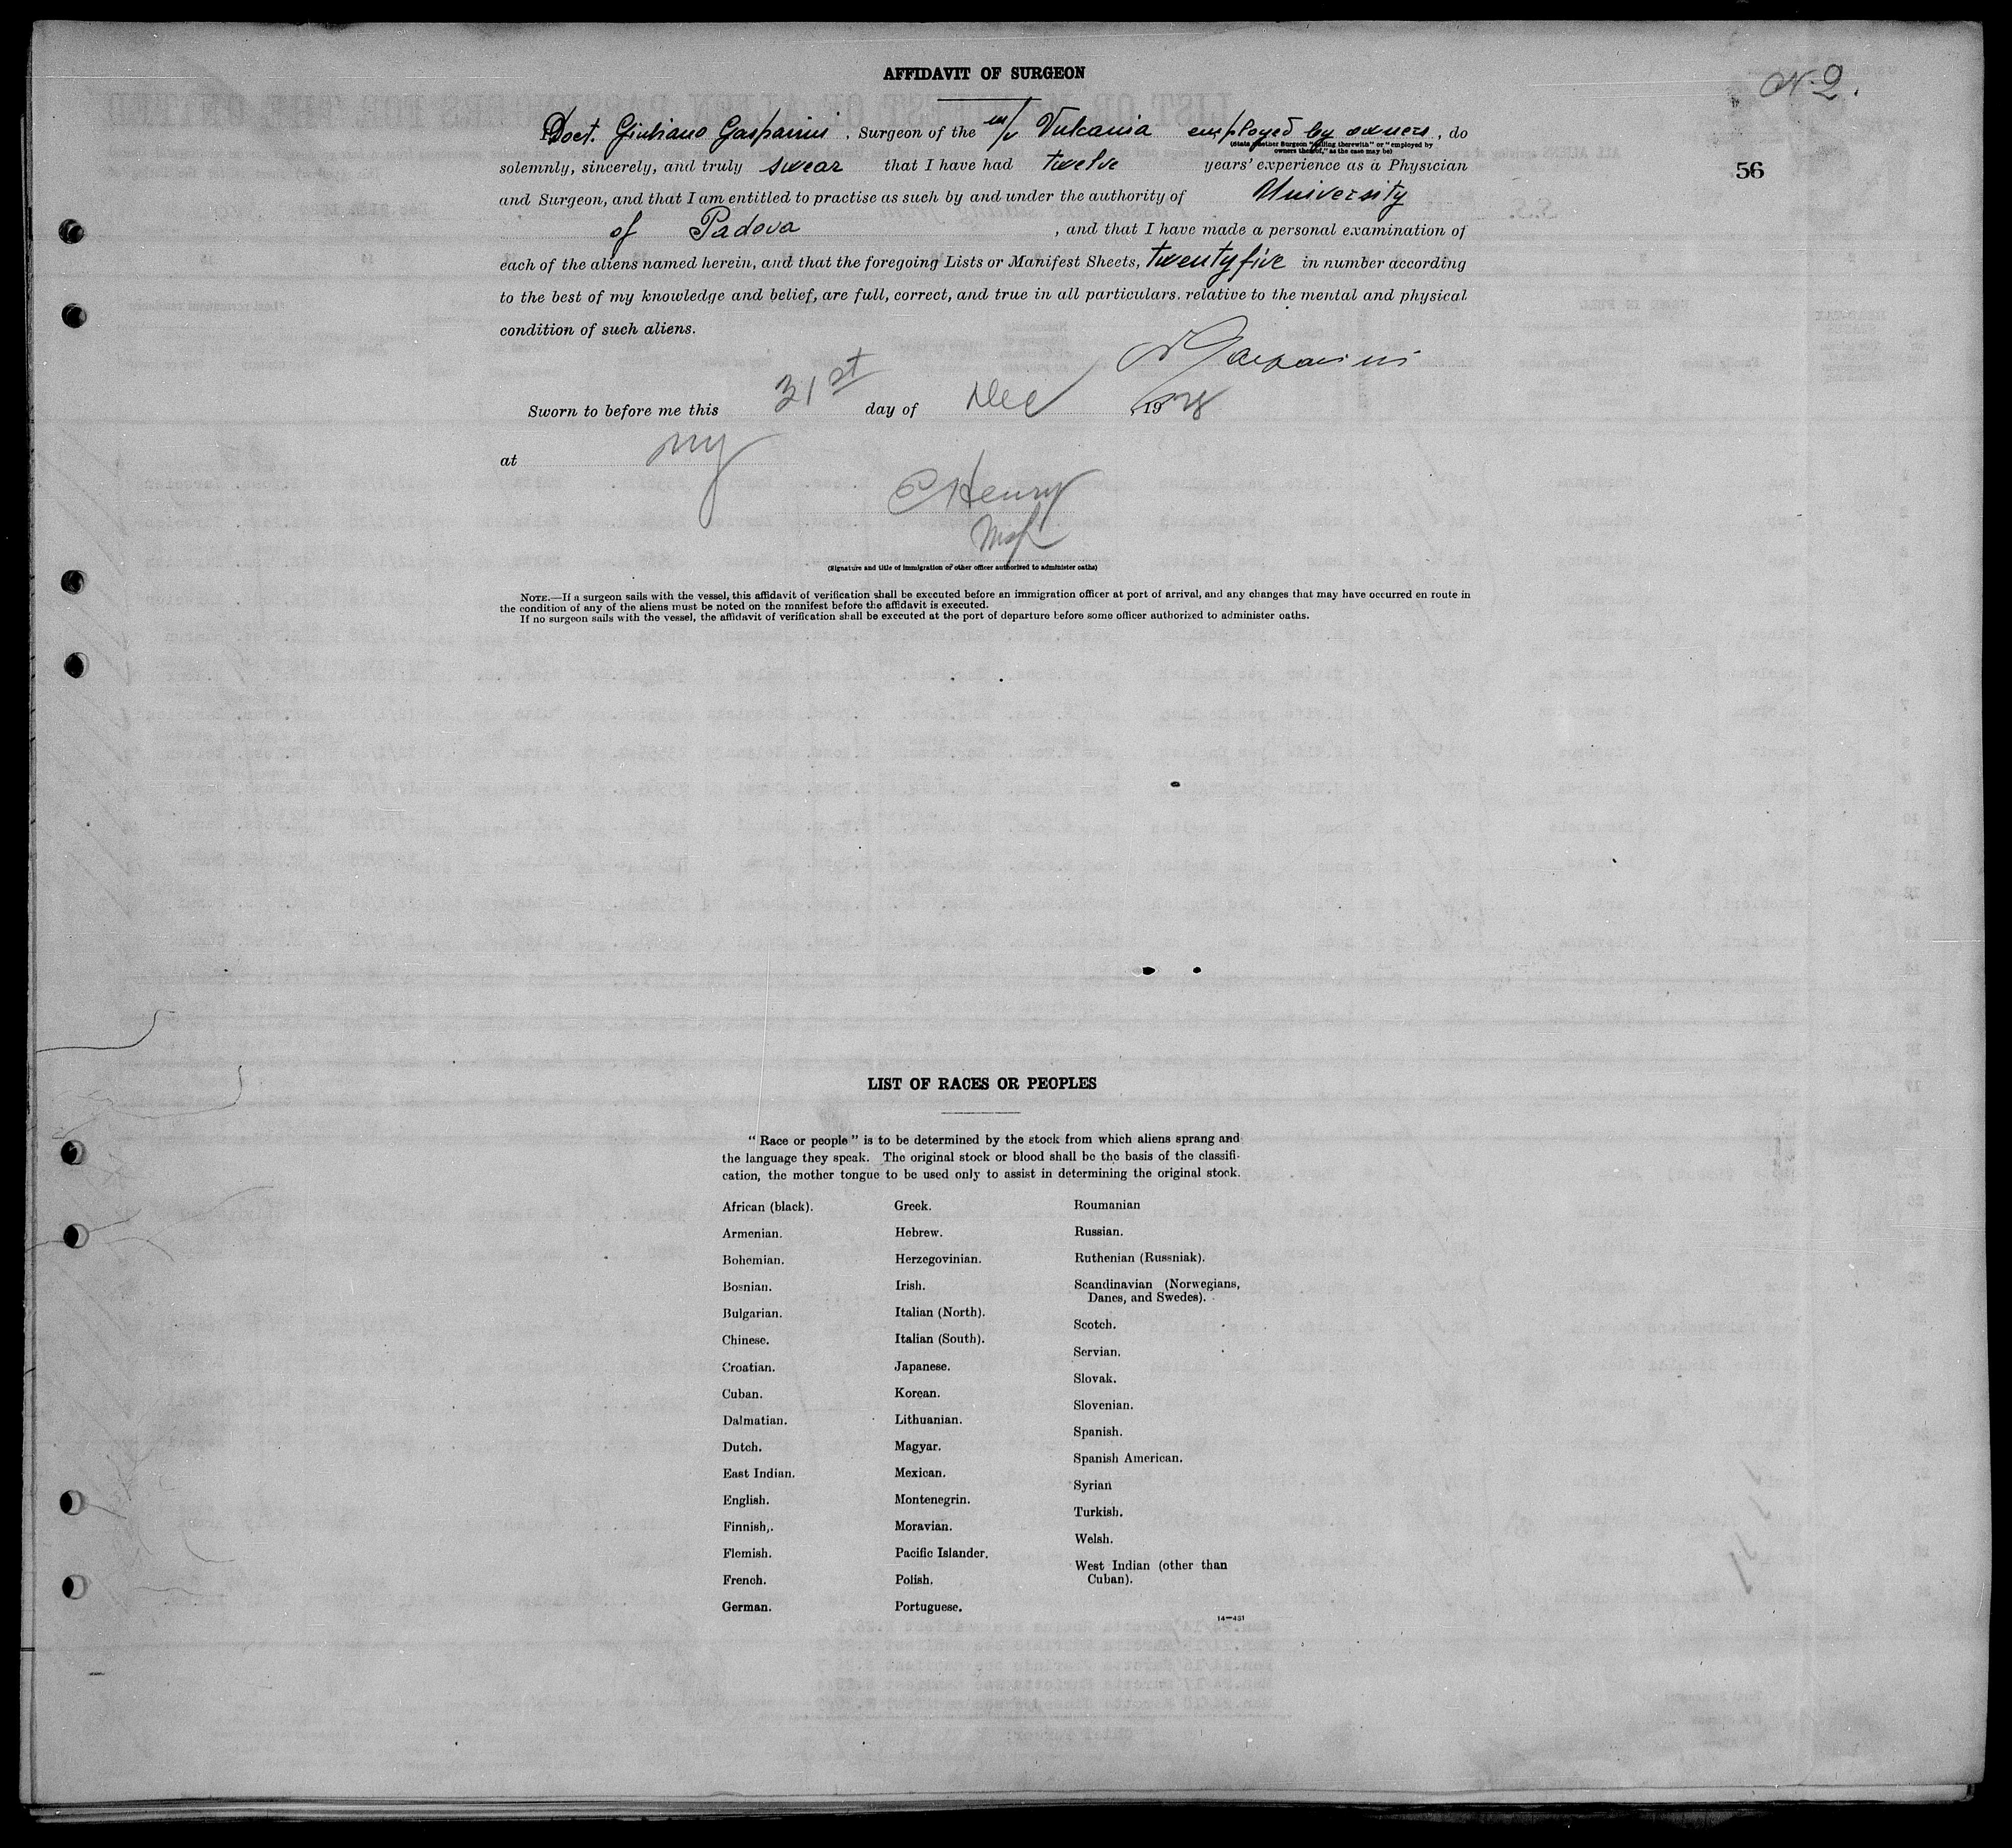 AFFIDAVIT OF SURGEON
N 2.
Doct. Giuliano Gasparini, Surgeon of the m/v Vulcania employed by owners, do
(State whether Surgeon "sailing therewith" or "employed by
owners thereof," as the case may be)
solemnly, sincerely, and truly swear that I have had twelve years' experience as a Physician
56
and Surgeon, and that I am entitled to practise as such by and under the authority of University
of Padova, and that I have made a personal examination of
each of the aliens named herein, and that the foregoing Lists or Manifest Sheets, twentyfive in number according
to the best of my knowledge and belief, are full, correct, and true in all particulars relative to the mental and physical
condition of such aliens.
Gasparini
Sworn to before me this 31st day of Dec, 1928
at NY
Henry
(Signature and title of immigration or other officer authorized to administer oaths)
NOTE.—If a surgeon sails with the vessel, this affidavit of verification shall be executed before an immigration officer at port of arrival, and any changes that may have occurred en route in
the condition of any of the aliens must be noted on the manifest before the affidavit is executed.
If no surgeon sails with the vessel, the affidavit of verification shall be executed at the port of departure before some officer authorized to administer oaths.
LIST OF RACES OR PEOPLES
"Race or people" is to be determined by the stock from which aliens sprang and
the language they speak. The original stock or blood shall be the basis of the classifi-
cation, the mother tongue to be used only to assist in determining the original stock.
African (black).
Armenian.
Bohemian.
Bosnian.
Bulgarian.
Chinese.
Croatian.
Cuban.
Dalmatian.
Dutch.
East Indian.
English.
Finnish,.
Flemish.
French.
German.
Greek.
Hebrew.
Herzegovinian.
Irish.
Italian (North).
Italian (South).
Japanese.
Korean.
Lithuanian.
Magyar.
Mexican.
Montenegrin.
Moravian.
Pacific Islander.
Polish.
Portuguese.
Roumanian
Russian.
Ruthenian (Russniak).
Scandinavian (Norwegians,
Danes, and Swedes).
Scotch.
Servian.
Slovak.
Slovenian.
Spanish.
Spanish American.
Syrian
Turkish.
Welsh.
West Indian (other than
Cuban).
14—431